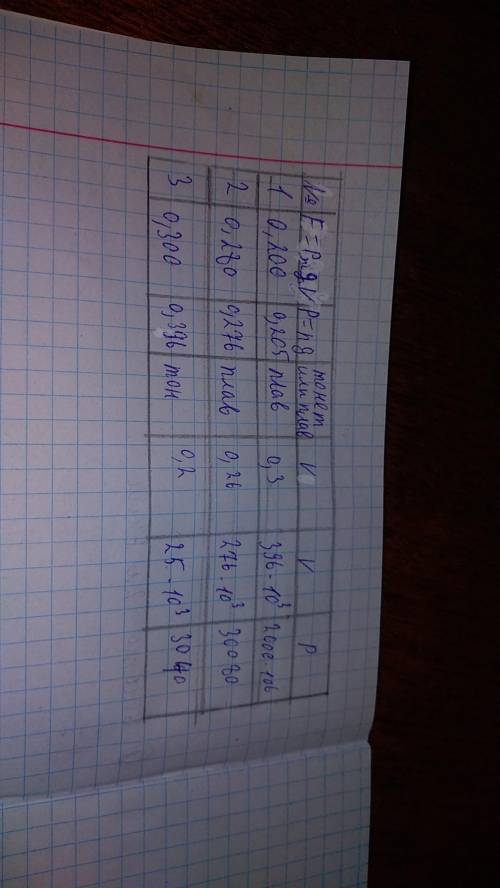 № F=ρжgV P=mg тонет или плав V V P
1 0,200 0,205 плав 0,3 396·10³ 2000·106
2 0,280 0,276 плав 0,26 276·10³ 30080
3 0,300 0,396 тон 0,2 25·10³ 3040